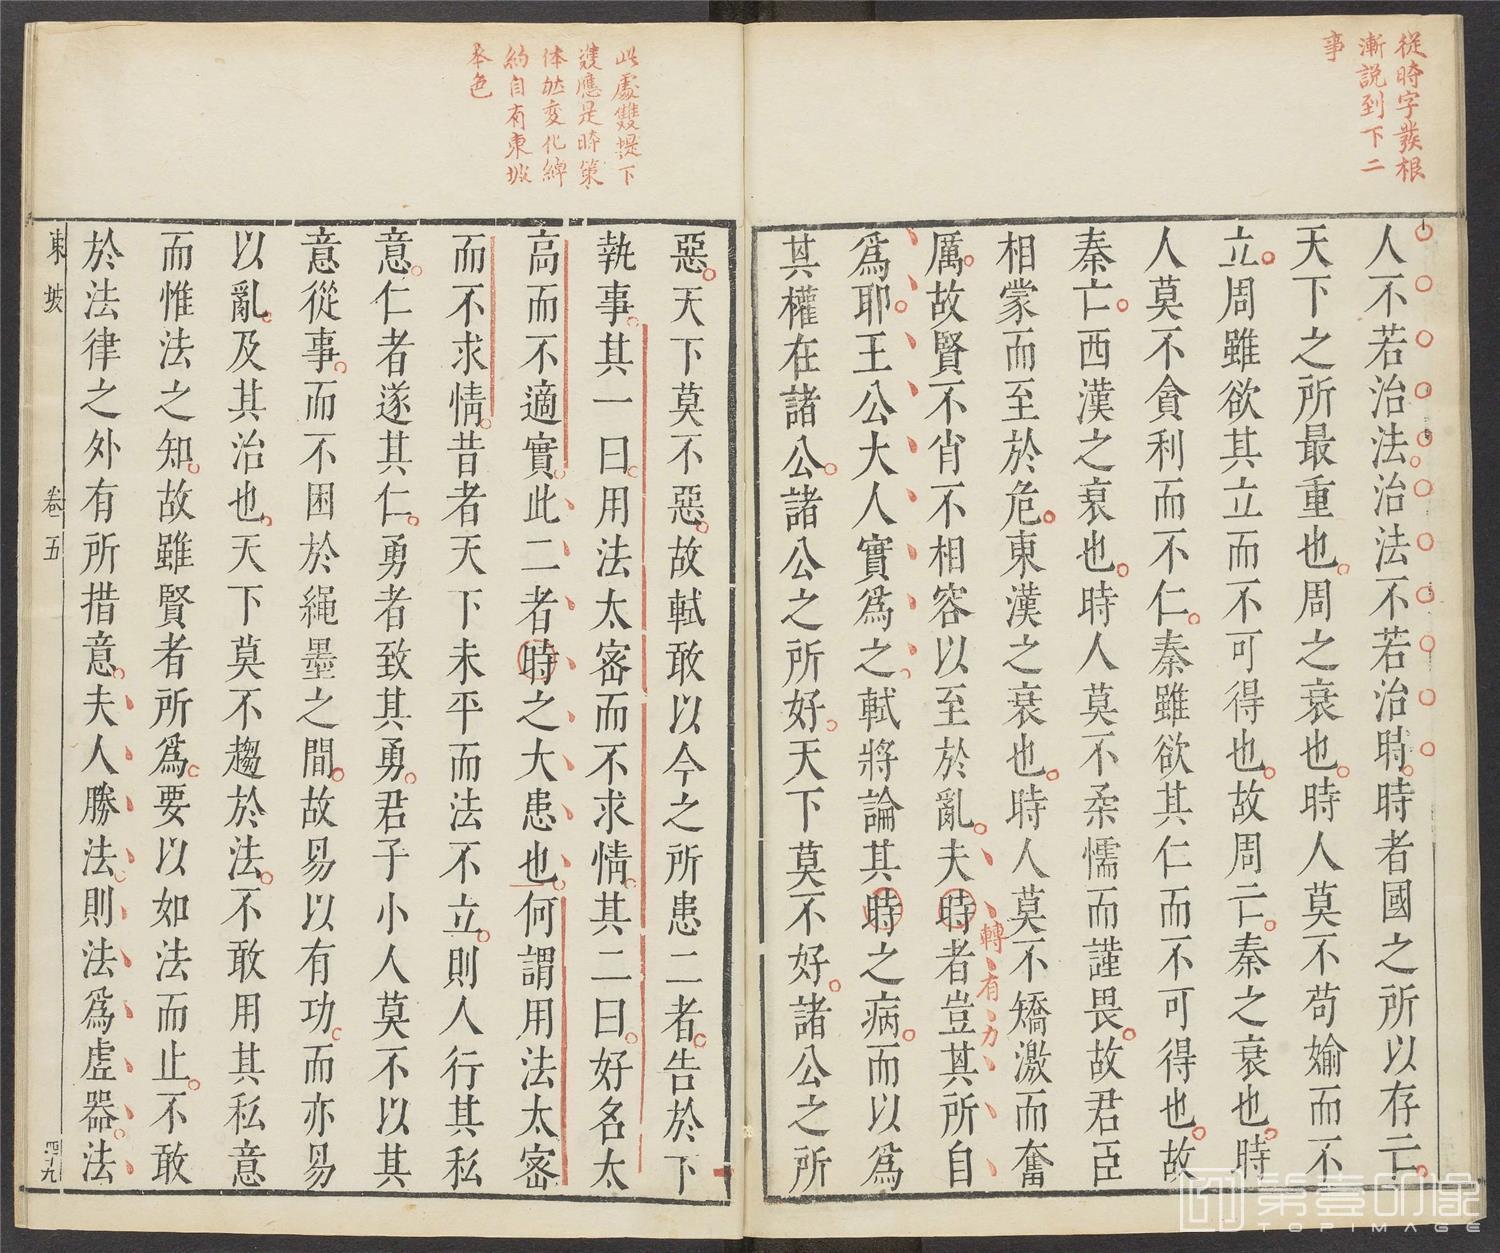 從時字發根
漸說到下二
事
人不若治法治法不若治時時者國之所以存亡
天下之所最重也周之衰也時人莫不苟媮而不
立周雖欲其立而不可得也故周亡秦之衰也時
人莫不貪利而不仁秦雖欲其仁而不可得也故
秦亡西漢之衰也時人莫不柔懦而謹畏故君臣
相蒙而至於危東漢之衰也時人莫不矯激而奮
轉有力
厲故賢不肖不相容以至於亂夫時者豈其所自
爲耶王公大人實爲之軾將論其時之病而以爲
其權在諸公諸公之所好天下莫不好諸公之所
此處雙提下
雙應是時策
体然變化綽
約自有東坡
本色
惡天下莫不惡故軾敢以今之所患二者告於下
執事其一曰用法太密而不求情其二曰好名太
高而不適實此二者時之大患也何謂用法太密
而不求情昔者天下未平而法不立則人行其私
意仁者遂其仁勇者致其勇君子小人莫不以其
意從事而不困於繩墨之間故易以有功而亦易
以亂及其治也天下莫不趨於法不敢用其私意
而惟法之知故雖賢者所爲要以如法而止不敢
於法律之外有所措意夫人勝法則法爲虛器法
東坡 卷五 四十九
第壹印像
TOPIMAGE